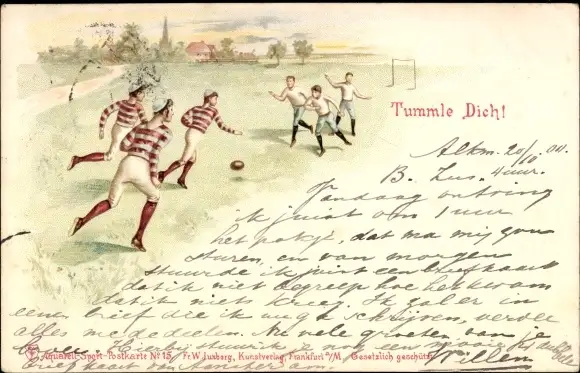 Tummle Dich!
Alkm. 20/10 00.
B. Zus. 4 uur.
Vandaag ontving
ik juist om 1 uur
het pakje, dat ma mij zou
sturen, en van morgen
stuurde ik juist een briefkaart
dat ik niet begreep hoe het kwam
dat ik niets kreeg. Ik zal er in
een brief die ik nog schrijven, verder
alles mededeelen. Na vele groeten van je
broer Willem
Hierbij stuur ik je nog een mooie
briefkaart van Amsterdam.
Aquarell-Sport-Postkarte No 15. Fr. W. Luxberg, Kunstverlag, Frankfurt a/M. Gesetzlich geschützt